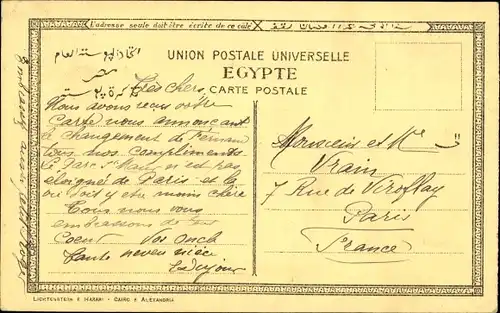 L'adresse seule doit être écrite de ce côté
UNION POSTALE UNIVERSELLE
EGYPTE
CARTE POSTALE
اتحاد بوستة العام
مصر
تذكرة بوستة
Très chers
Nous avons reçu votre
carte nous annonçant
le changement de Fernand
tous nos compliments
le Parc St Maur n'est pas
éloigné de Paris et la
vie doit y être moins chère
Tous nous vous
embrassons de tout
Coeur Vos oncle
tante neveu nièce
Embrassez aussi
Monsieur et Me
Vrain
7 Rue de Viroflay
Paris
France
LICHTENSTERN & HARARI - CAIRO & ALEXANDRIA